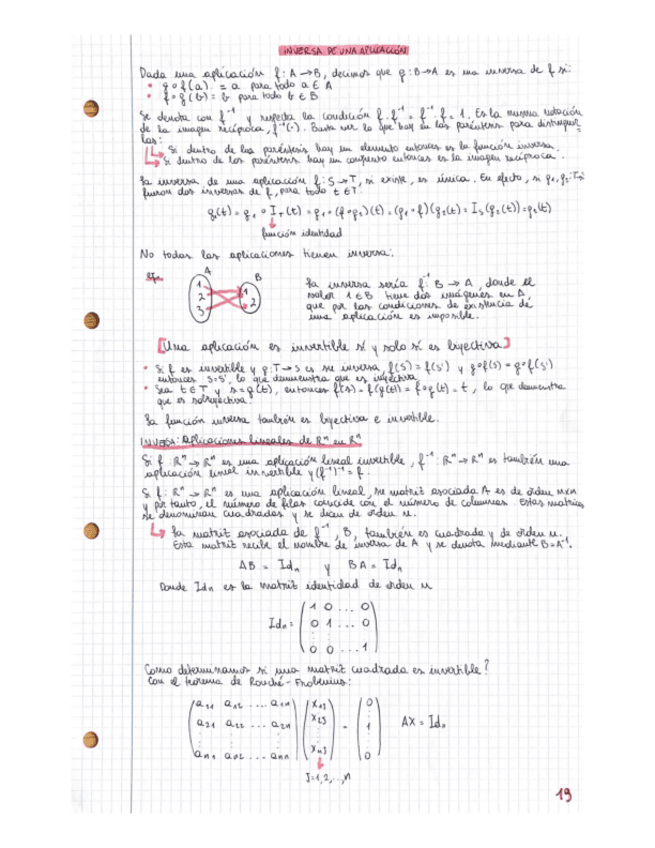 INVERSA DE UNA APLICACIÓN
Dada una aplicación f: A→B, decimos que g: B→A es una inversa de f si:
• g∘f(a) = a para todo a ∈ A
• f∘g(b) = b para todo b ∈ B
Se denota con f⁻¹ y respeta la condición f·f⁻¹ = f⁻¹·f = 1. Es la misma notación
de la imagen recíproca, f⁻¹(·). Basta ver lo que hay en los paréntesis para distinguir
las:
Si dentro de los paréntesis hay un elemento entonces es la función inversa.
Si dentro de los paréntesis hay un conjunto entonces es la imagen recíproca.
La inversa de una aplicación f: S→T, si existe, es única. En efecto, si g₁, g₂: T→S
fueran dos inversas de f, para todo t ∈ T:
g₁(t) = g₁ ∘ I_T(t) = g₁ ∘ (f∘g₂)(t) = (g₁∘f)(g₂(t)) = I_S(g₂(t)) = g₂(t)
función identidad
No todas las aplicaciones tienen inversa:
A B
1 2 3
1 2
La inversa sería f⁻¹: B → A, donde el
valor 1 ∈ B tiene dos imágenes en A,
que por las condiciones de existencia de
una aplicación es imposible.
[Una aplicación es invertible si y solo si es biyectiva]
• Si f es invertible y g: T→S es su inversa, f(s) = f(s') y g∘f(s) = g∘f(s')
entonces s=s', lo que demuestra que es inyectiva.
• Sea t ∈ T y s = g(t), entonces f(s) = f(g(t)) = f∘g(t) = t, lo que demuestra
que es sobreyectiva.
La función inversa también es biyectiva e invertible.
INVERSA: Aplicaciones lineales de Rⁿ en Rⁿ
Si f: Rⁿ → Rⁿ es una aplicación lineal invertible, f⁻¹: Rⁿ → Rⁿ es también una
aplicación lineal invertible y (f⁻¹)⁻¹ = f.
Si f: Rⁿ → Rⁿ es una aplicación lineal, su matriz asociada A es de orden nxn
y por tanto, el número de filas coincide con el número de columnas. Estas matrices
se denominan cuadradas y se dicen de orden n.
La matriz asociada de f⁻¹, B, también es cuadrada y de orden n.
Esta matriz recibe el nombre de inversa de A y se denota mediante B=A⁻¹.
AB = Idₙ y BA = Idₙ
Donde Idₙ es la matriz identidad de orden n
1 0 ... 0
Idₙ = 0 1 ... 0
0 0 ... 1
Como determinamos si una matriz cuadrada es invertible?
Con el teorema de Rouché-Frobenius:
a₁₁ a₁₂ ... a₁ₙ x₁ⱼ 0
a₂₁ a₂₂ ... a₂ₙ x₂ⱼ = 1 AX = Idₙ
aₙ₁ aₙ₂ ... aₙₙ xₙⱼ 0
J=1,2,..,n
19